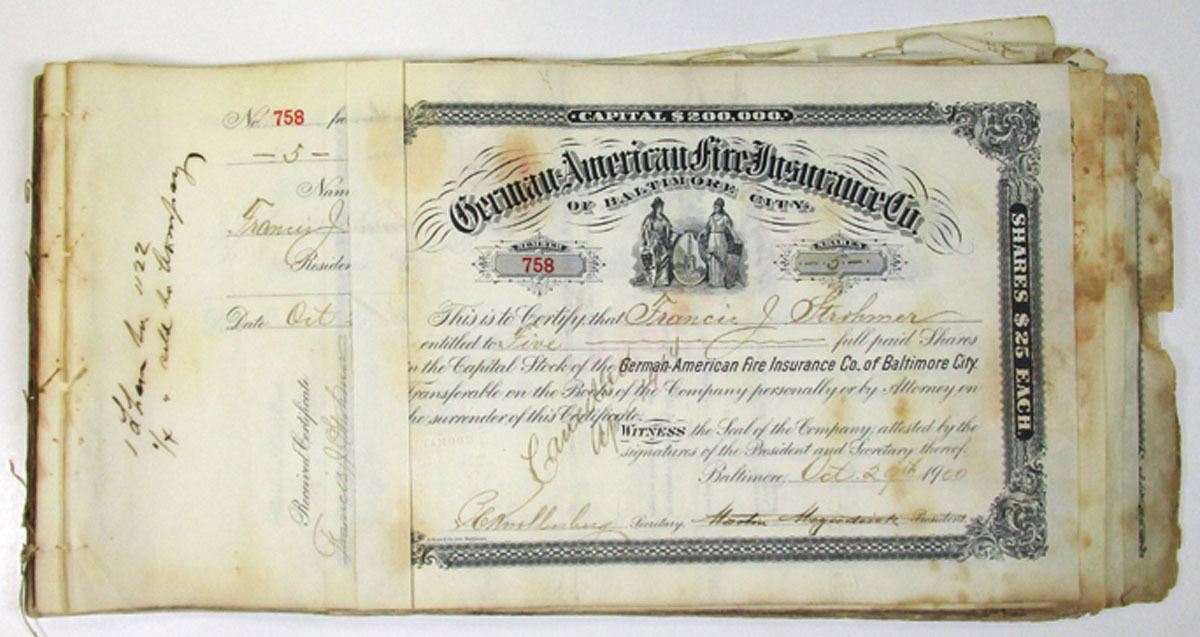 No. 758 fro
— 5 —
Nam
Francis J
Residen
Date Oct.
Received Certificate
Francis J Strohmer
1122
sold to Company
CAPITAL $200,000.
German-American Fire Insurance Co.
OF BALTIMORE CITY.
NUMBER
758
SHARES
— 5 —
This is to Certify that Francis J Strohmer
entitled to Five full paid Shares
in the Capital Stock of the German-American Fire Insurance Co. of Baltimore City.
Transferable on the Books of the Company personally or by Attorney on
the surrender of this Certificate.
WITNESS the Seal of the Company, attested by the
signatures of the President and Secretary thereof.
Baltimore, Oct. 29th 1900
Secretary. Martin President.
SHARES $25 EACH.